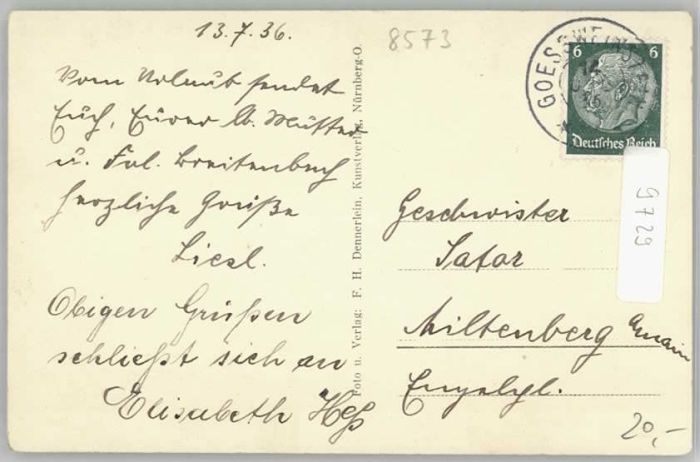 13.7.36.
8573
GOESSWEINSTEIN
6 6
Deutsches Reich
Vom Urlaub sendet
Euch, Eurer lb. Mutter
u. Frl. Breitenbach
herzliche Grüße
Liesl.
Obigen Grüßen
schließt sich an
Elisabeth Heß
Foto u. Verlag: F. H. Dennerlein, Kunstverlag, Nürnberg-O.
9729
Geschwister
Sator
Miltenberg a/Main
20,-